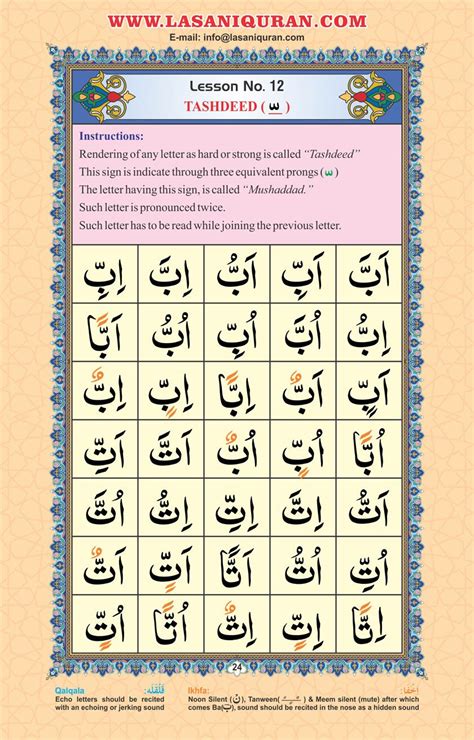 WWW.LASANIQURAN.COM
E-mail: info@lasaniquran.com
Lesson No. 12
TASHDEED ( ـّ )
Instructions:
Rendering of any letter as hard or strong is called “Tashdeed”
This sign is indicate through three equivalent prongs ( ـّ )
The letter having this sign, is called “Mushaddad.”
Such letter is pronounced twice.
Such letter has to be read while joining the previous letter.
اَبَّ اَبِّ اَبُّ اِبَّ اِبِّ
اِبُّ اُبَّ اُبِّ اُبُّ اَبًّا
اَبٍّ اَبٌّ اِبًّا اِبٍّ اِبٌّ
اُبًّا اُبٍّ اُبٌّ اَتَّ اَتِّ
اَتُّ اِتَّ اِتِّ اِتُّ اُتَّ
اُتِّ اُتُّ اَتًّا اَتٍّ اَتٌّ
اِتًّا اِتٍّ اِتٌّ اُتًّا اُتٍّ
24
Qalqala قَلْقَلَه:
Echo letters should be recited
with an echoing or jerking sound
Ikhfa: اخفا:
Noon Silent (نْ), Tanween( ـًـٍـٌ ) & Meem silent (mute) after which
comes Ba(ب), sound should be recited in the nose as a hidden sound